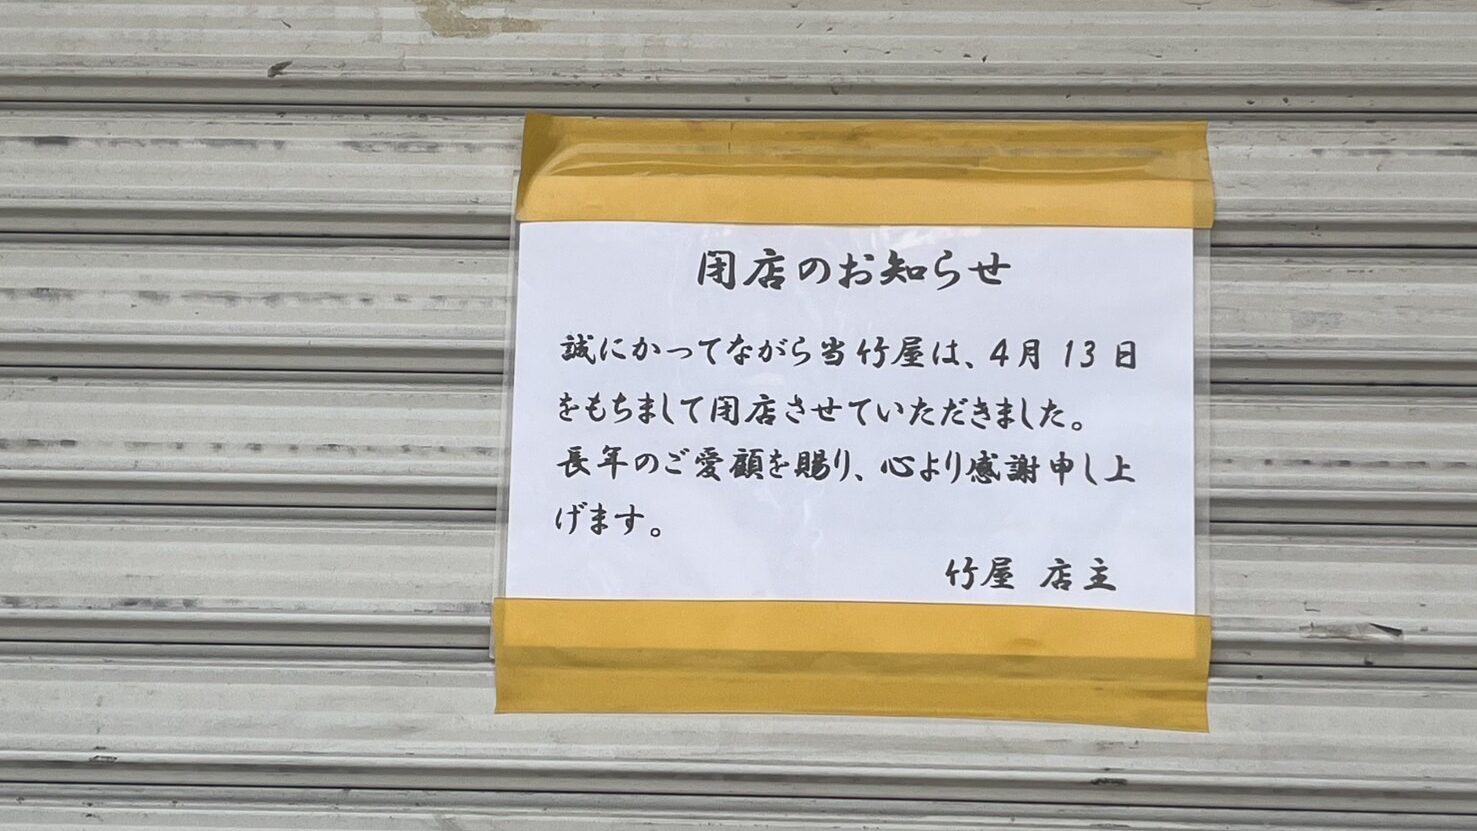 閉店のお知らせ
誠にかってながら当竹屋は、4月 13 日
をもちまして閉店させていただきました。
長年のご愛顧を賜り、心より感謝申し上
げます。
竹屋 店主